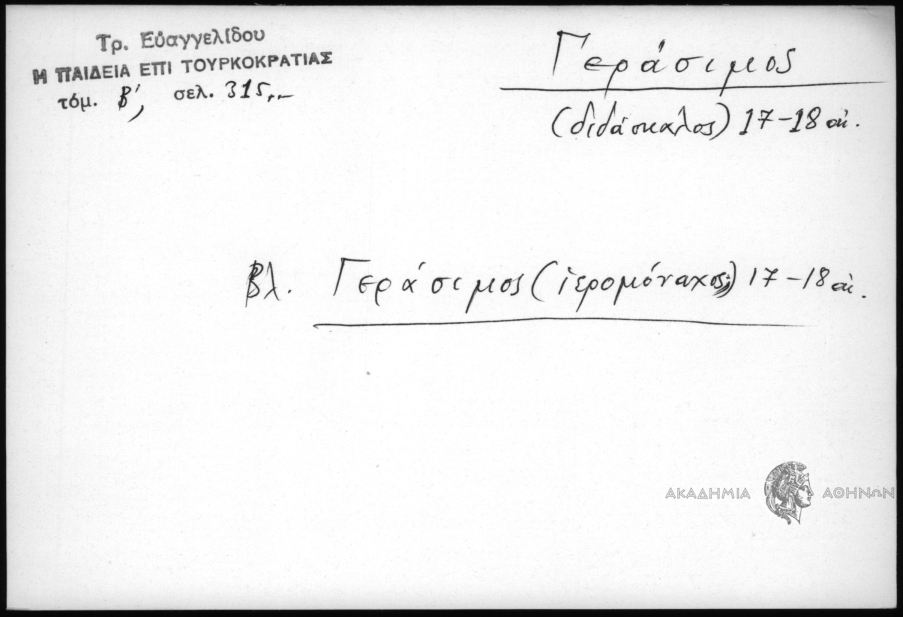 Τρ. Εὐαγγελίδου
Η ΠΑΙΔΕΙΑ ΕΠΙ ΤΟΥΡΚΟΚΡΑΤΙΑΣ
τόμ. Β', σελ. 315,,_
Γεράσιμος
(διδάσκαλος) 17-18 αἰ.
Βλ. Γεράσιμος (ἱερομόναχος) 17-18 αἰ.
ΑΚΑΔΗΜΙΑ ΑΘΗΝΩΝ